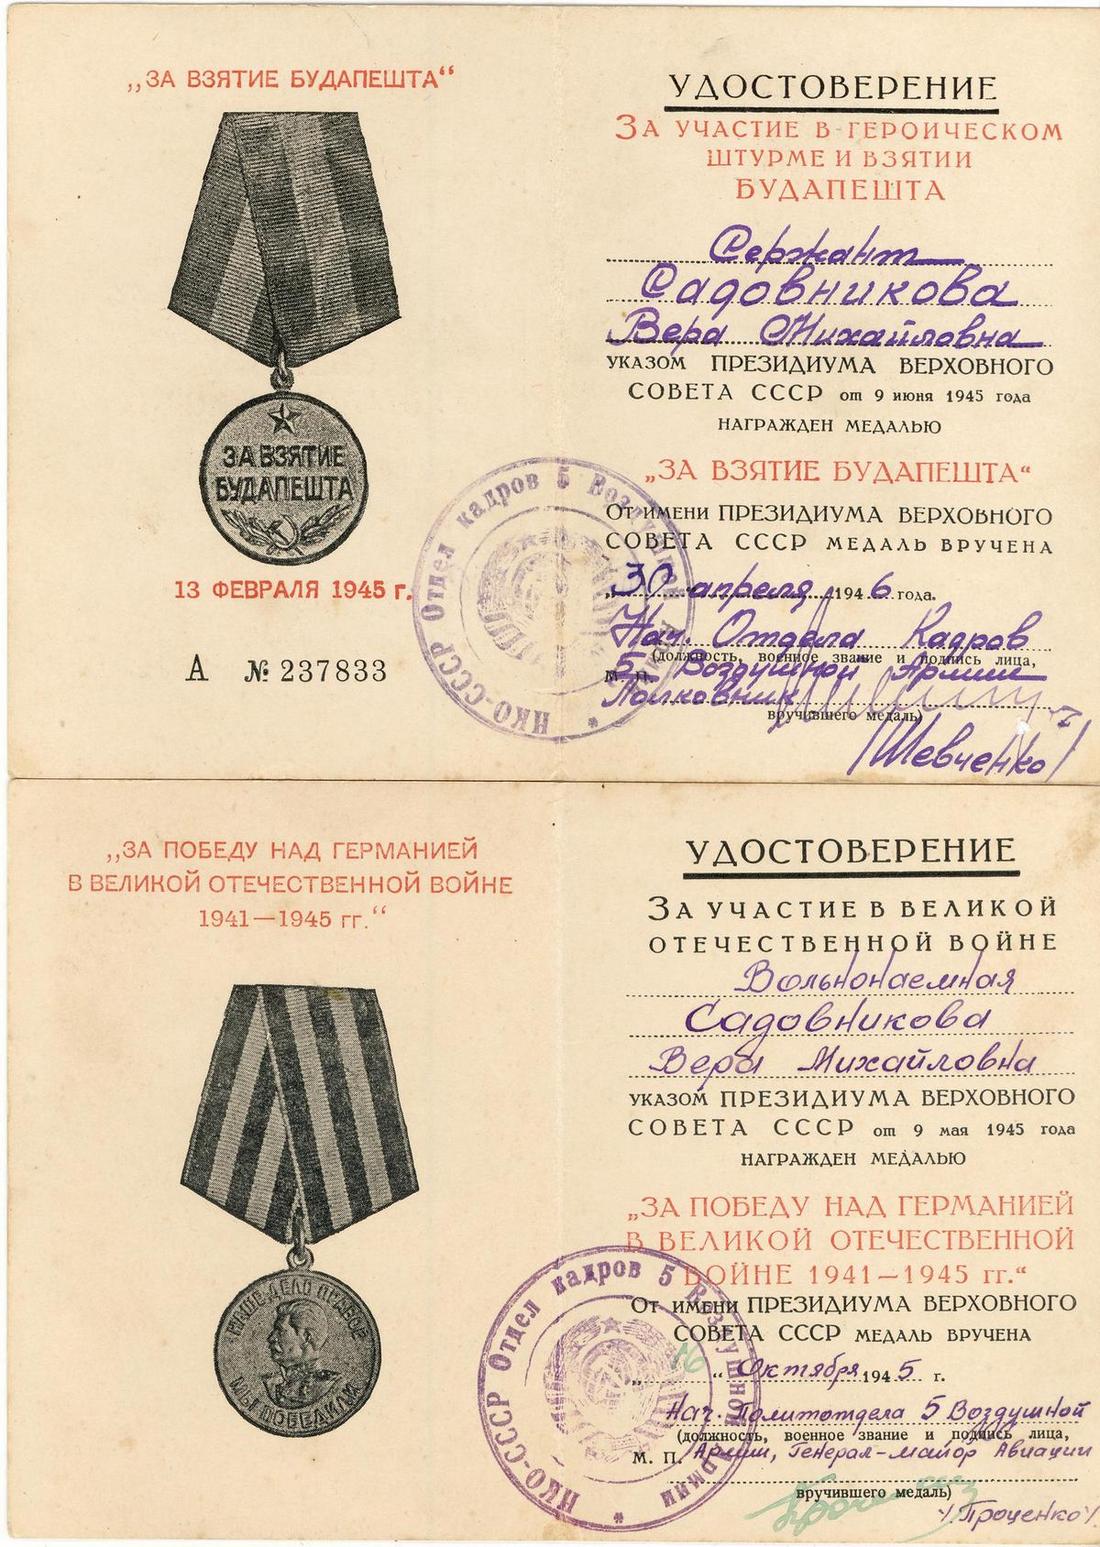 „ЗА ВЗЯТИЕ БУДАПЕШТА“
ЗА ВЗЯТИЕ
БУДАПЕШТА
13 ФЕВРАЛЯ 1945 г.
А № 237833
УДОСТОВЕРЕНИЕ
ЗА УЧАСТИЕ В ГЕРОИЧЕСКОМ
ШТУРМЕ И ВЗЯТИИ
БУДАПЕШТА
Сержант
Садовникова
Вера Михайловна
УКАЗОМ ПРЕЗИДИУМА ВЕРХОВНОГО
СОВЕТА СССР от 9 июня 1945 года
НАГРАЖДЕН МЕДАЛЬЮ
„ЗА ВЗЯТИЕ БУДАПЕШТА“
ОТ ИМЕНИ ПРЕЗИДИУМА ВЕРХОВНОГО
СОВЕТА СССР МЕДАЛЬ ВРУЧЕНА
„30 апреля 1946 года.
Нач. Отдела Кадров
(должность, военное звание и подпись лица,
М. П. 5 Воздушной Армии
Полковник
вручившего медаль)
/Шевченко/
НКО-СССР Отдел кадров 5 Воздушной Армии *
„ЗА ПОБЕДУ НАД ГЕРМАНИЕЙ
В ВЕЛИКОЙ ОТЕЧЕСТВЕННОЙ ВОЙНЕ
1941—1945 гг.“
НАШЕ ДЕЛО ПРАВОЕ
МЫ ПОБЕДИЛИ
УДОСТОВЕРЕНИЕ
ЗА УЧАСТИЕ В ВЕЛИКОЙ
ОТЕЧЕСТВЕННОЙ ВОЙНЕ
Вольнонаемная
Садовникова
Вера Михайловна
УКАЗОМ ПРЕЗИДИУМА ВЕРХОВНОГО
СОВЕТА СССР от 9 мая 1945 года
НАГРАЖДЕН МЕДАЛЬЮ
„ЗА ПОБЕДУ НАД ГЕРМАНИЕЙ
В ВЕЛИКОЙ ОТЕЧЕСТВЕННОЙ
ВОЙНЕ 1941—1945 гг.“
ОТ ИМЕНИ ПРЕЗИДИУМА ВЕРХОВНОГО
СОВЕТА СССР МЕДАЛЬ ВРУЧЕНА
„16“ Октября 1945 г.
Нач. Политотдела 5 Воздушной
(должность, военное звание и подпись лица,
М. П. Армии, Генерал-майор Авиации
вручившего медаль)
/Проценко/
НКО-СССР Отдел кадров 5 Воздушной Армии *